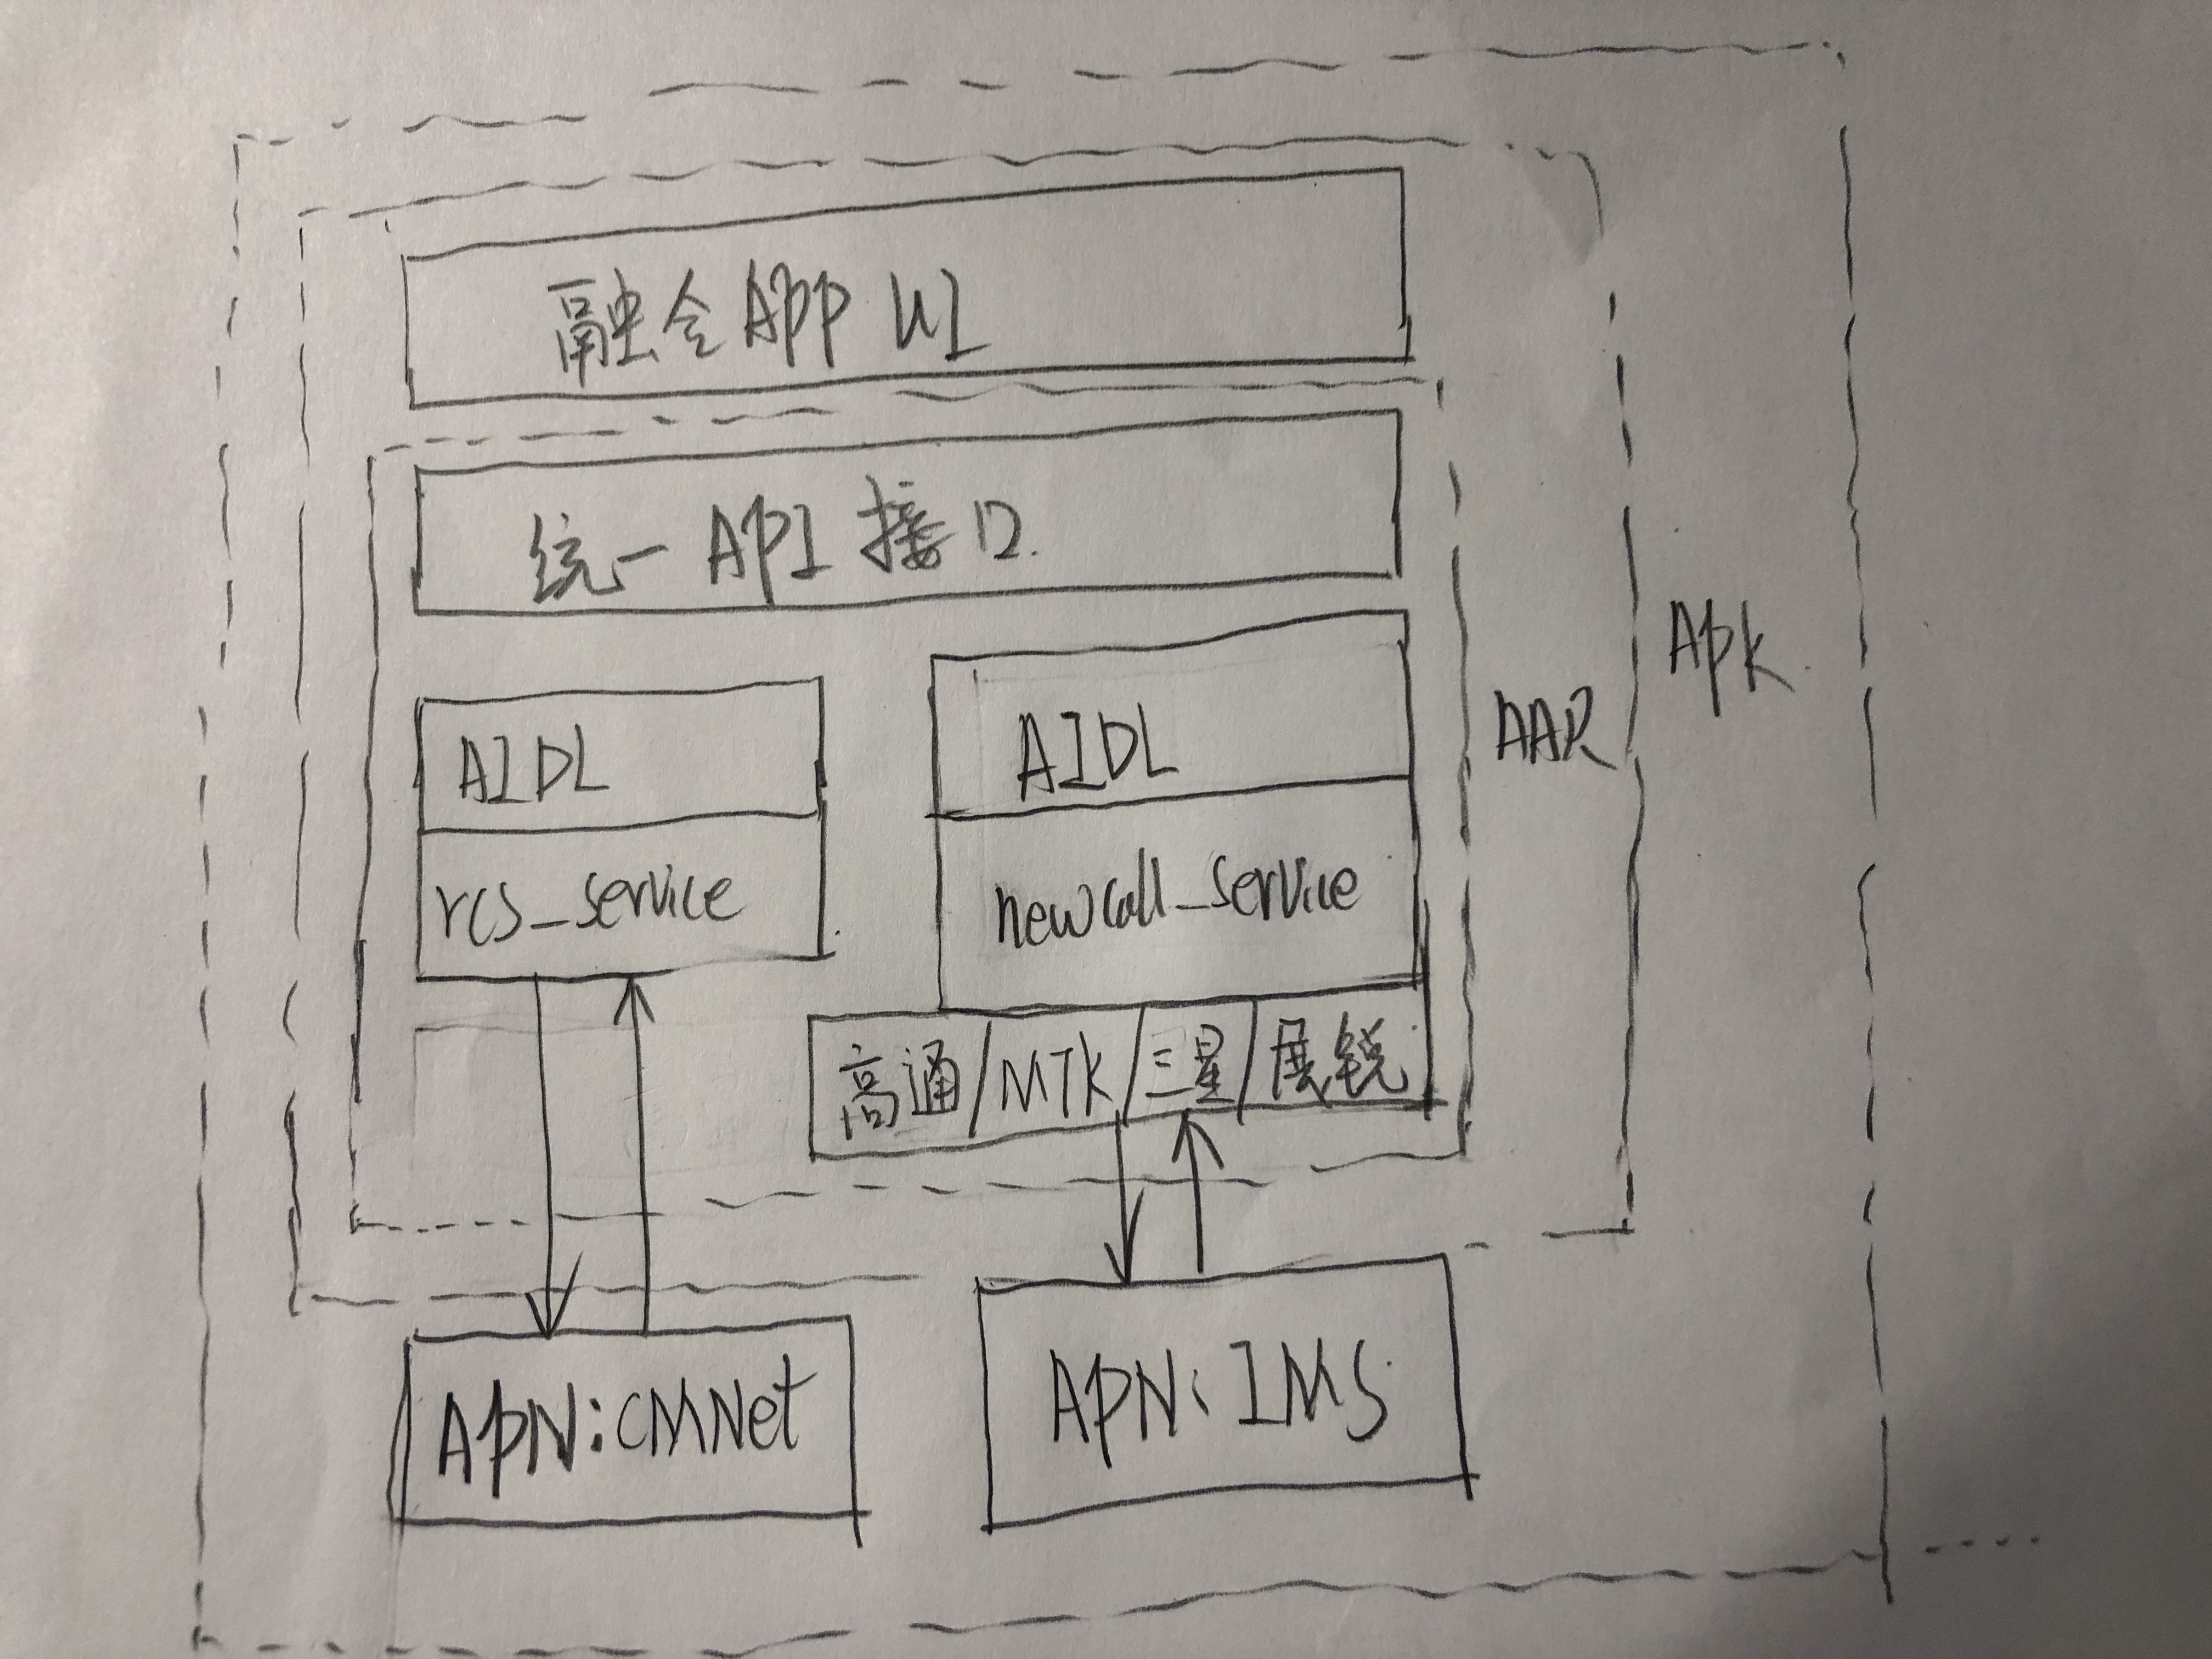 融合APP UI
统一 API 接口
AIDL
AIDL
AAR
Apk
rcs_service
newcall_service
高通/MTK/三星/展锐
APN:CMNet
APN:IMS